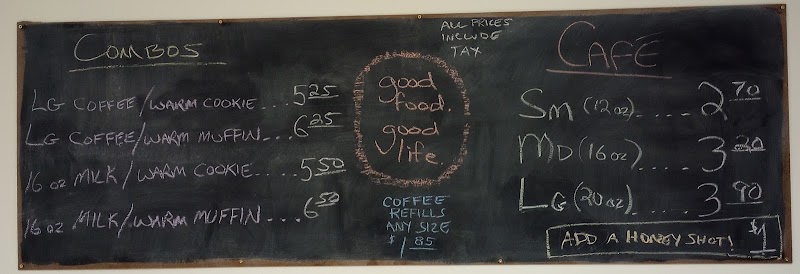 COMBOS
LG COFFEE/WARM COOKIE....5 25
LG COFFEE/WARM MUFFIN...6 25
16 oz MILK/WARM COOKIE....5 50
16 oz MILK/WARM MUFFIN....6 50
good
food.
good
life.
COFFEE
REFILLS
ANY SIZE
$1 85
ALL PRICES
INCLUDE
TAX
CAFÉ
SM (12oz)....2 70
MD (16oz).....3 30
LG (20oz).....3 90
ADD A HONEY SHOT! $1